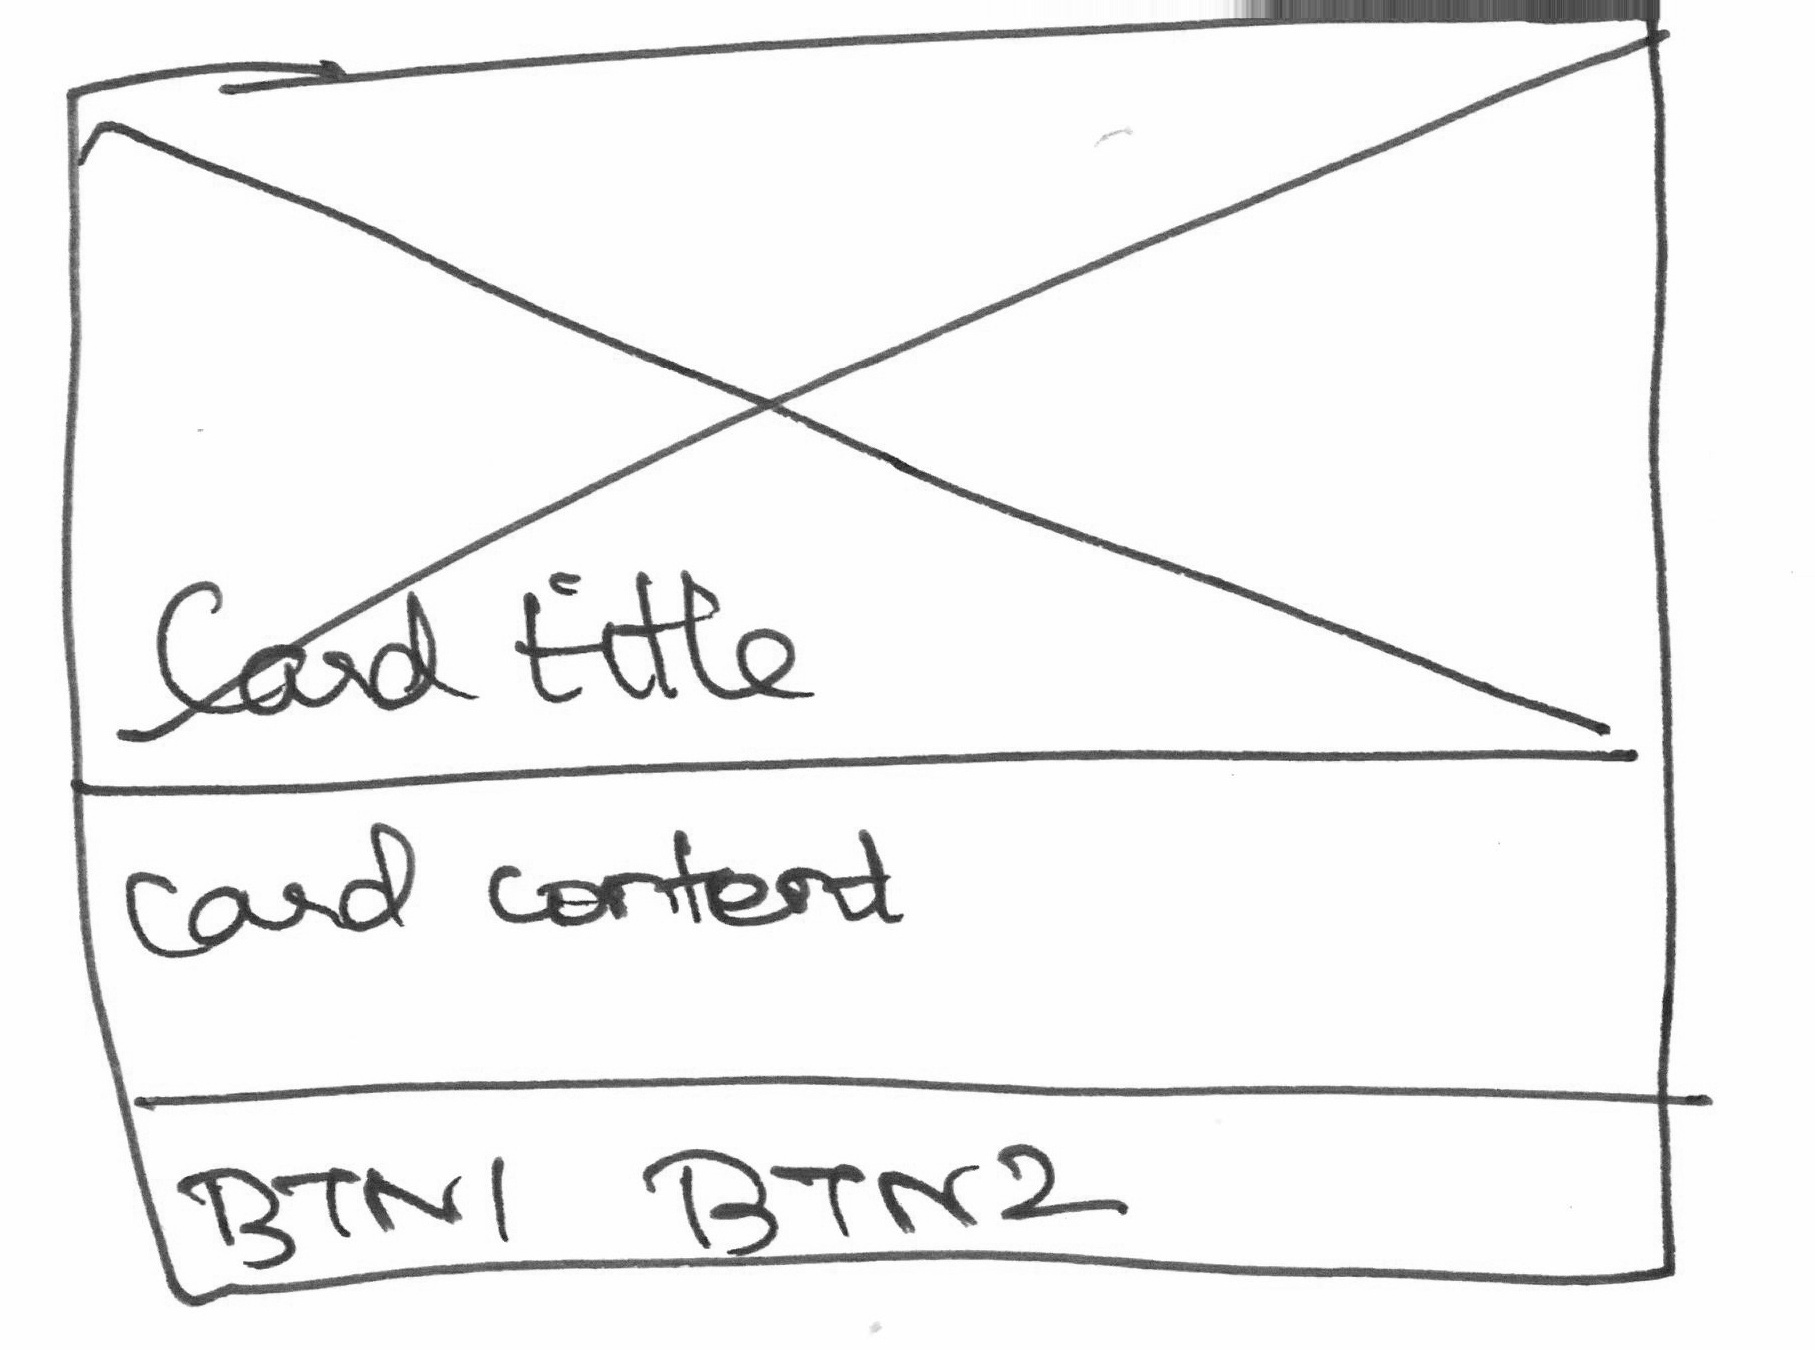 Card title
card content
BTN1 BTN2